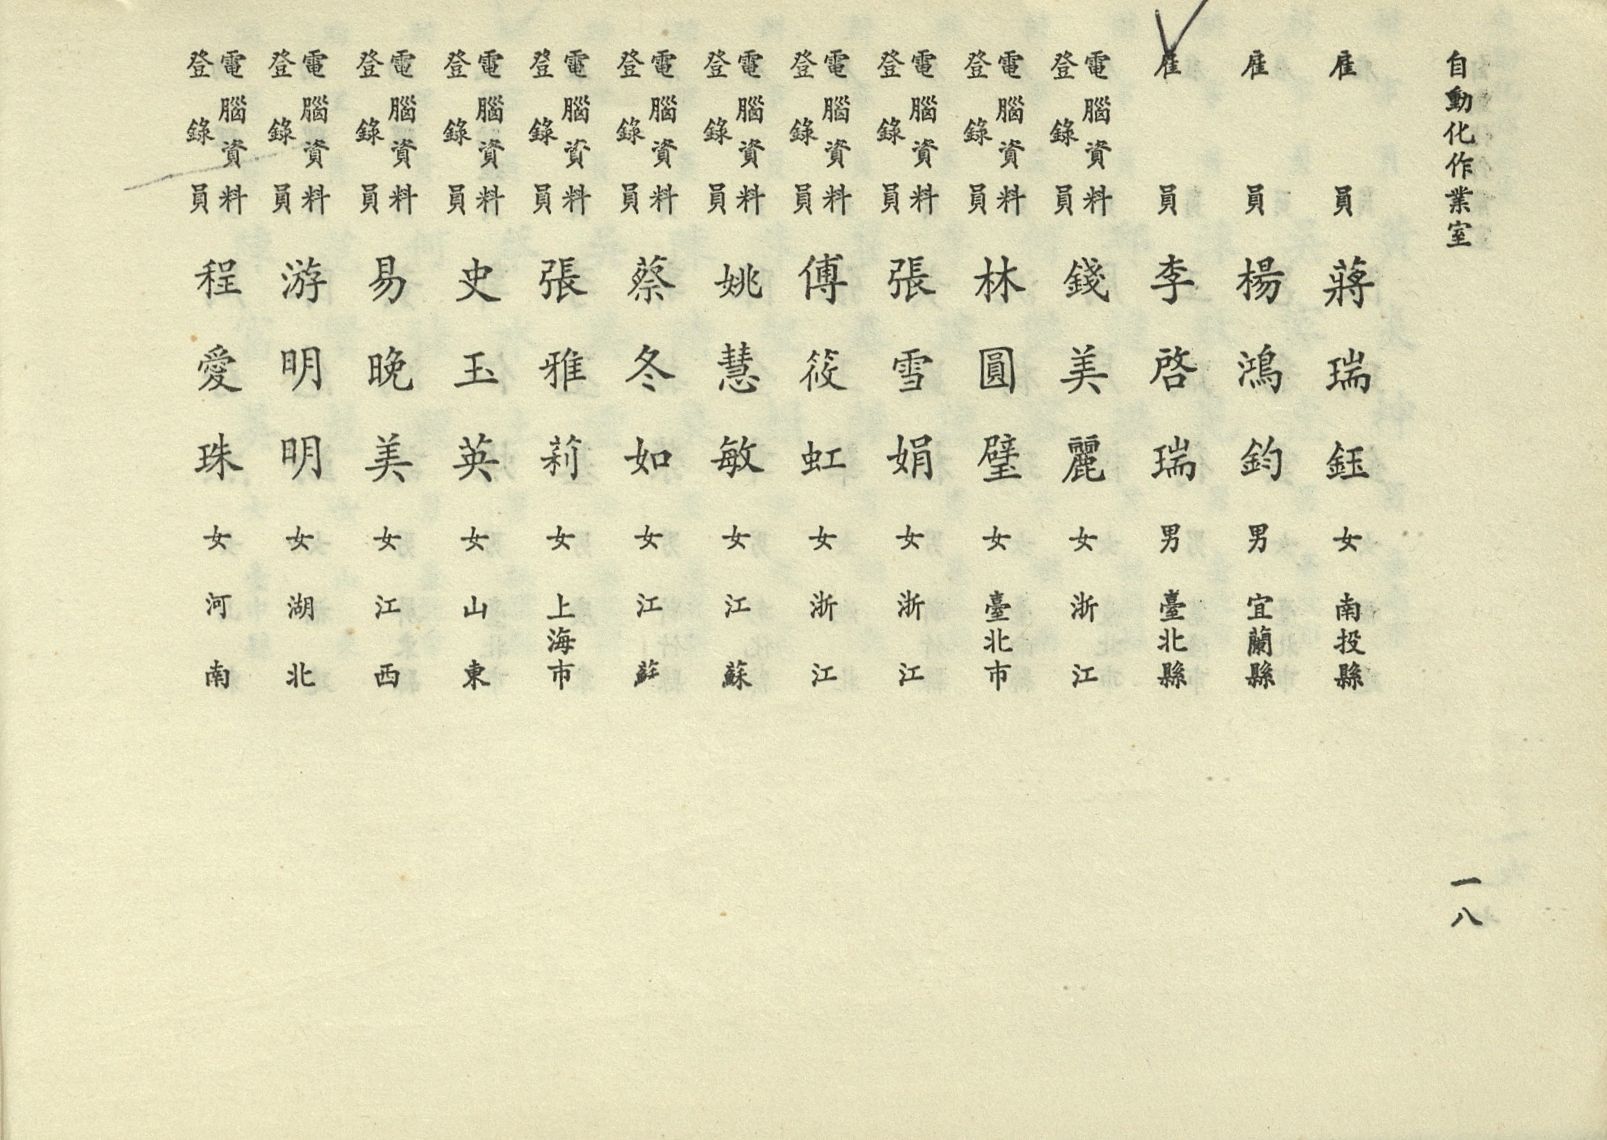 自動化作業室
雇員 蔣瑞鈺 女 南投縣
雇員 楊鴻鈞 男 宜蘭縣
雇員 李啓瑞 男 臺北縣
電腦資料登錄員 錢美麗 女 浙江
電腦資料登錄員 林圓璧 女 臺北市
電腦資料登錄員 張雪娟 女 浙江
電腦資料登錄員 傅筱虹 女 浙江
電腦資料登錄員 姚慧敏 女 江蘇
電腦資料登錄員 蔡冬如 女 江蘇
電腦資料登錄員 張雅莉 女 上海市
電腦資料登錄員 史玉英 女 山東
電腦資料登錄員 易晚美 女 江西
電腦資料登錄員 游明明 女 湖北
電腦資料登錄員 程愛珠 女 河南
一八